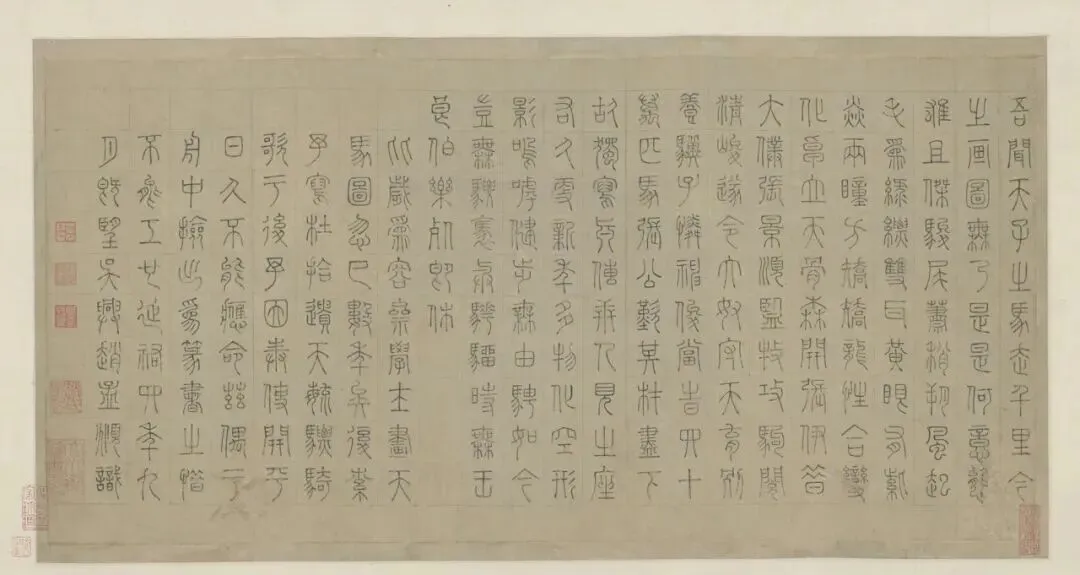 吾聞天子之馬走千里今
之画圖無乃是是何意態
雄且傑駿尾蕭梢朔風起
毛為綠縹雙耳黃眼有紫
焱兩瞳方矯矯龍性合變
化卓立天骨森開張伊昔
大僕張景順監牧攻駒閱
清峻遂令大奴字天育別
養驥子憐神俊當時四十
萬匹馬張公歎其材盡下
故獨寫真傳世人見之座
右久更新年多物化空形
影嗚呼健步無由騁如今
豈無騕褭與驊騮時無王
良伯樂死即休
此歲為容齋學士畫天
馬圖忽已數年矣復索
予寫杜拾遺天育驃騎
歌于後予因奉使開平
日久不能應命茲偶于
舟中撿出為篆書之惜
不能工也延祐四年九
月既望吳興趙孟頫識